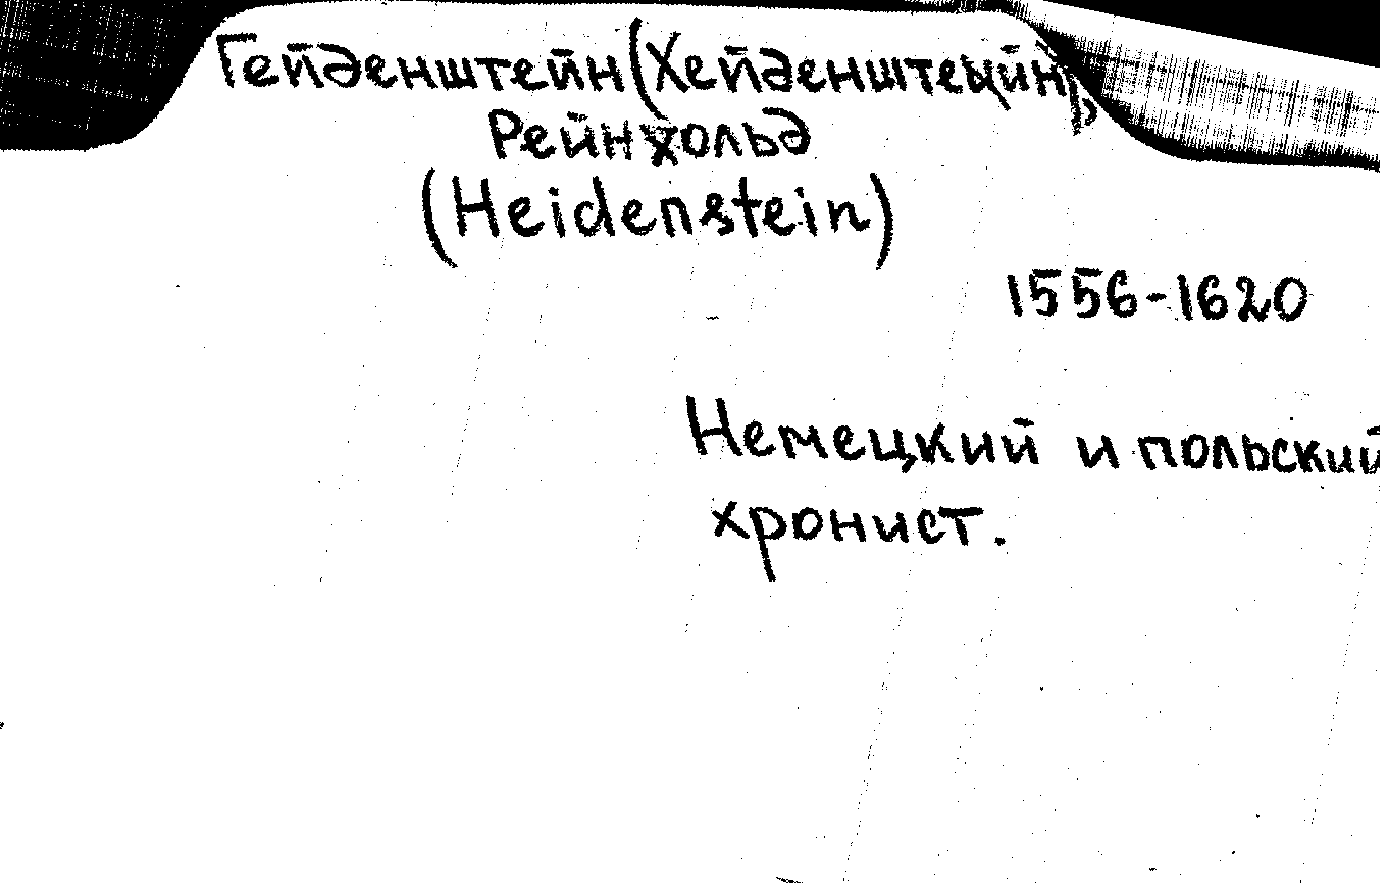 Гейденштейн (Хейденштецйн),
Рейнхольд
(Heidenstein)
1556-1620
Немецкий и польский
хронист.